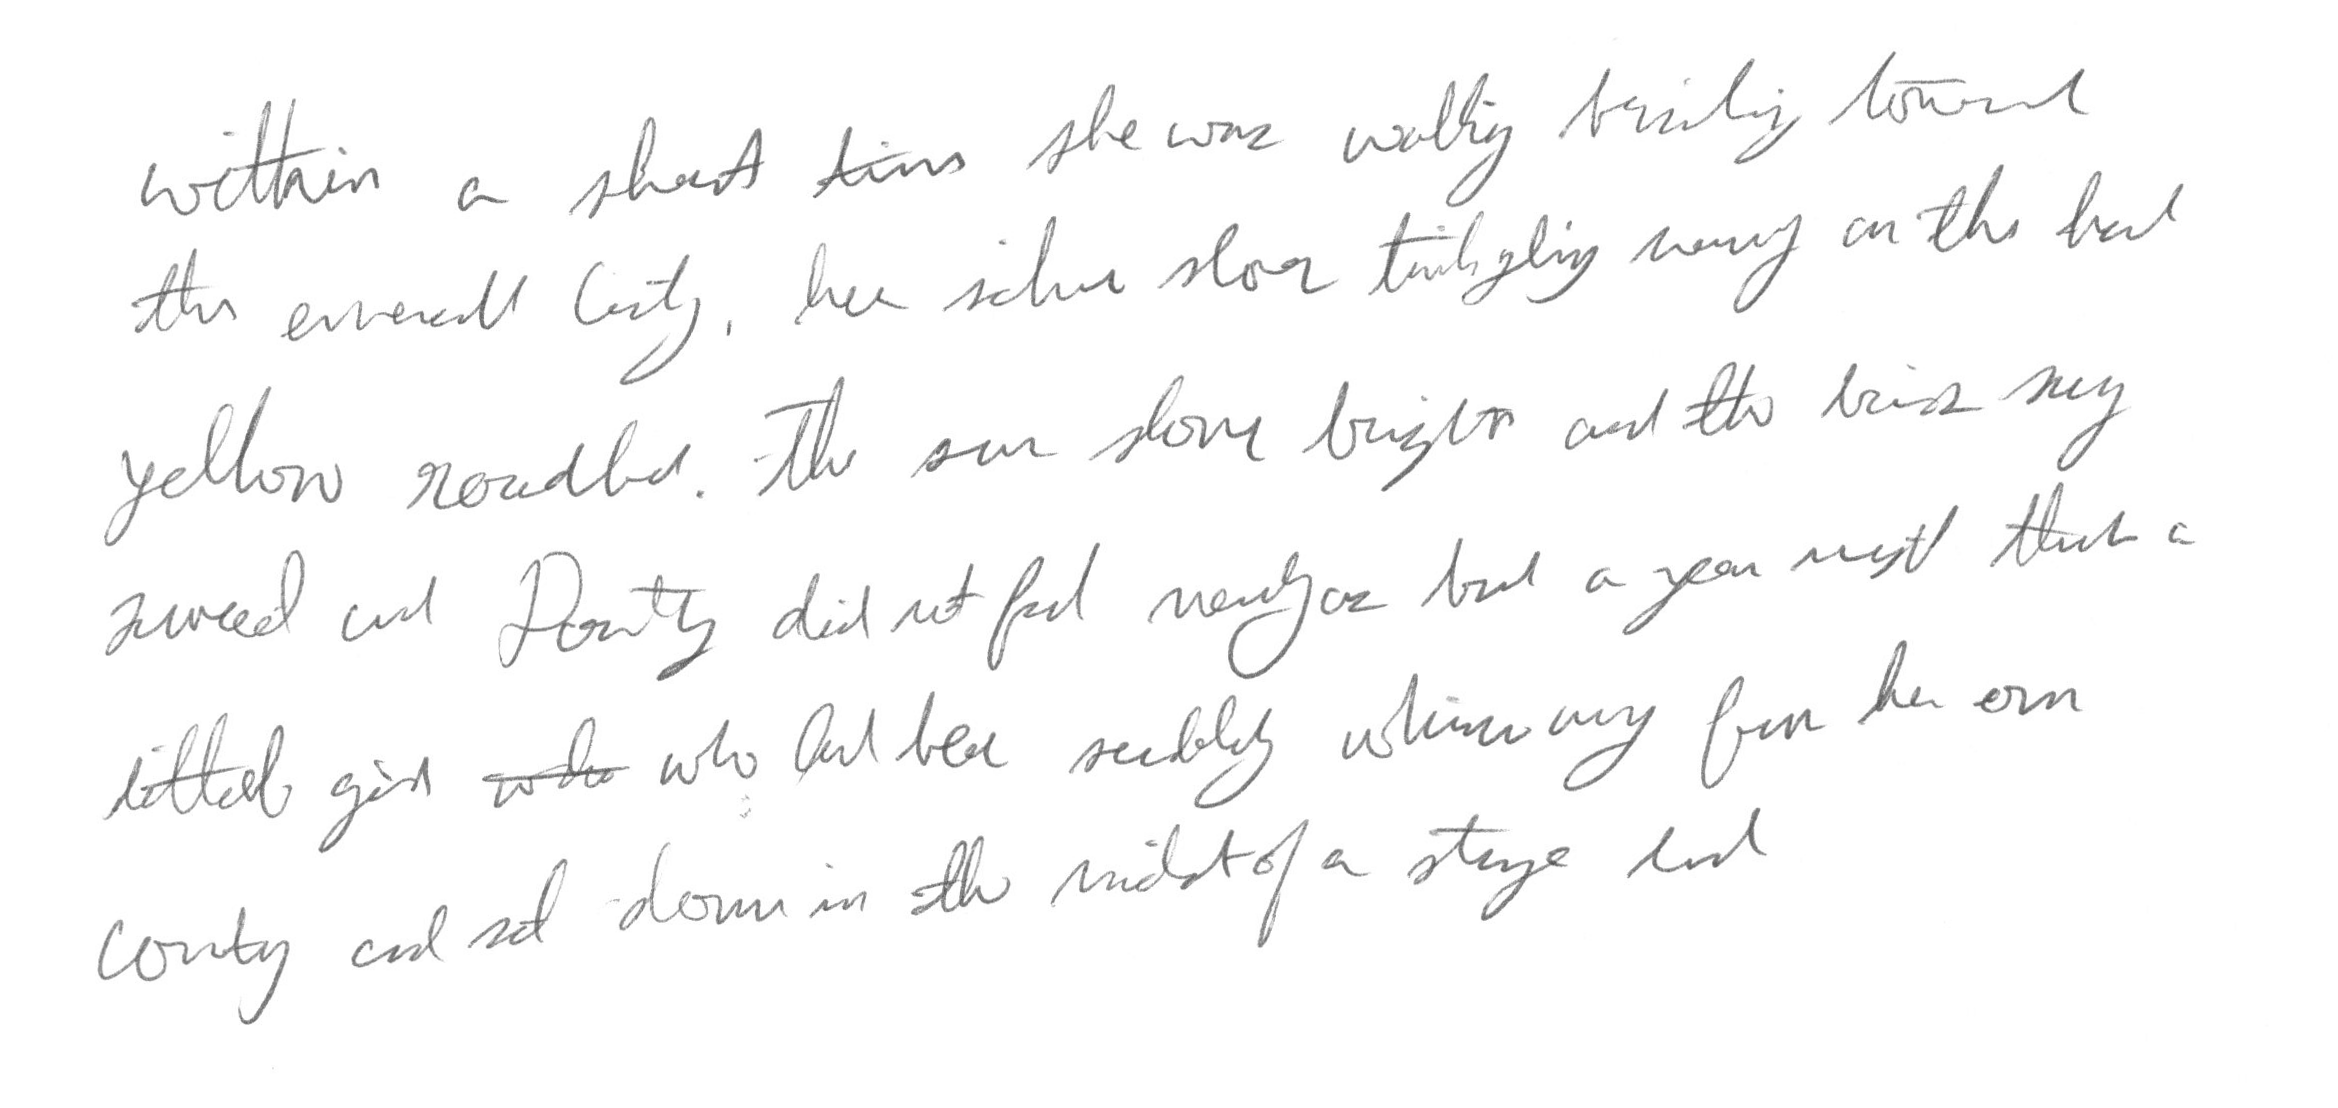 within a short time she was walking briskly toward
the emerald City, her silver shoes tinkling merrily on the hard
yellow roadbed. The sun shone bright and the birds sang
sweet and Dorothy did not feel nearly as bad as you might think a
little girl who who had been suddenly whisked away from her own
country and set down in the midst of a strange land